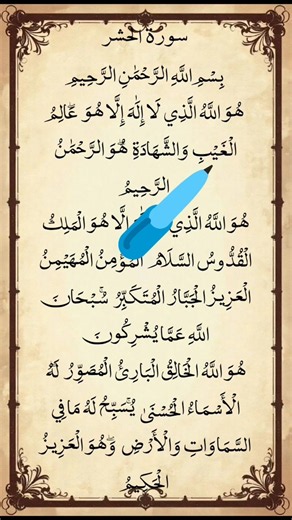 سورة الحشر
بِسْمِ اللَّهِ الرَّحْمَٰنِ الرَّحِيمِ
هُوَ اللَّهُ الَّذِي لَا إِلَٰهَ إِلَّا هُوَ عَالِمُ
الْغَيْبِ وَالشَّهَادَةِ هُوَ الرَّحْمَٰنُ
الرَّحِيمُ
هُوَ اللَّهُ الَّذِي إِلَّا هُوَ الْمَلِكُ
الْقُدُّوسُ السَّلَامُ الْمُؤْمِنُ الْمُهَيْمِنُ
الْعَزِيزُ الْجَبَّارُ الْمُتَكَبِّرُ سُبْحَانَ
اللَّهِ عَمَّا يُشْرِكُونَ
هُوَ اللَّهُ الْخَالِقُ الْبَارِئُ الْمُصَوِّرُ لَهُ
الْأَسْمَاءُ الْحُسْنَىٰ يُسَبِّحُ لَهُ مَا فِي
السَّمَاوَاتِ وَالْأَرْضِ وَهُوَ الْعَزِيزُ
الْحَكِيمُ